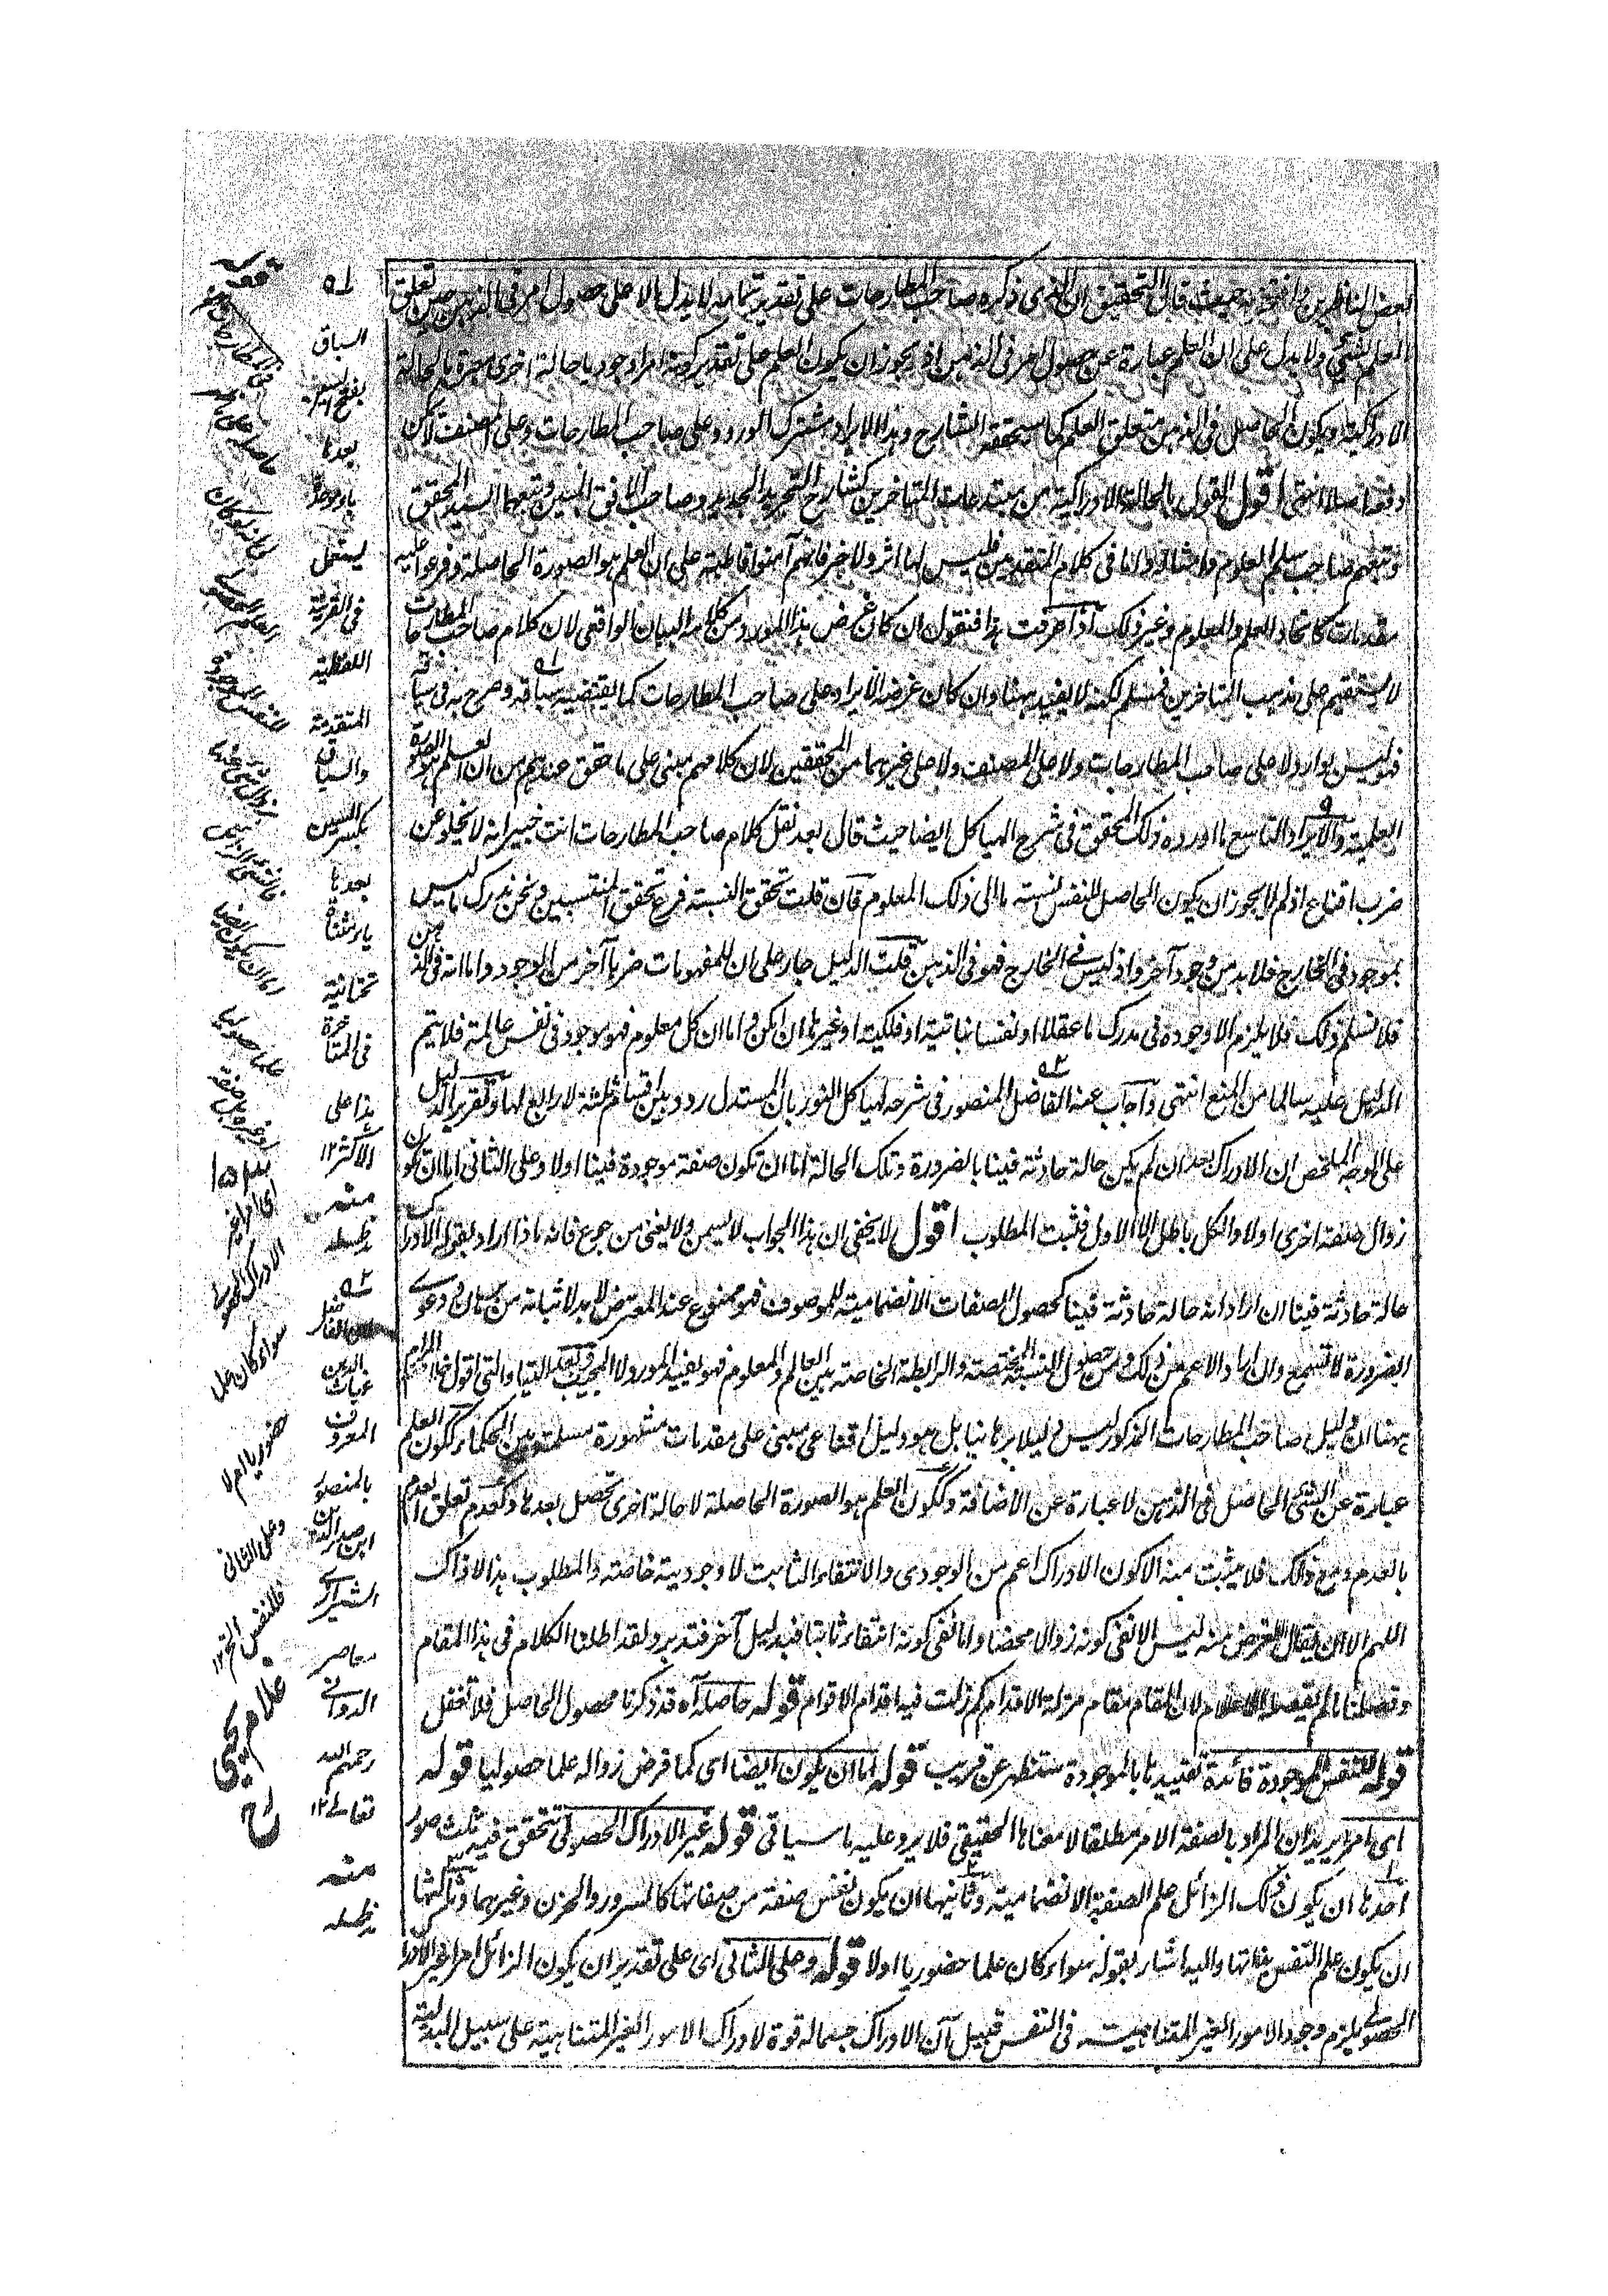 بعض الناظرين وافتخر به حيث قال التحقيق ان الذى ذكره صاحب المطارحات على تقدير تمامه لا يدل الا على حصول امر فى الذهن حين تعلق
العلم بالشئ ولا يدل على ان العلم عبارة عن حصول امر فى الذهن اذ يجوز ان يكون العلم على تقدير كونه امرا وجوديا حالة اخرى معبرة بالحالة
الادراكية ويكون الحاصل فى الذهن متعلق العلم كما سيحققه الشارح وهذا الايراد مشترك الورود على صاحب المطارحات وعلى المصنف لكن
اصلا انتهى اقول القول بالحالة الادراكية من مبتدعات المتاخرين كشارح التجريد الجديد وصاحب الافق المبين وتبعهما السيد المحقق
وتبعهم صاحب سلم العلوم وامثاله واما فى كلام المتقدمين فليس لها اثر ولا خبر فانهم آمنوا قاطبة على ان العلم هو الصورة الحاصلة وفرعوا عليه
مقدمات كاتحاد العلم والمعلوم وغير ذلك اذا عرفت هذا فنقول ان كان غرض هذا المورد من كلامه البيان الواقعى لان كلام صاحب المطارحات
لا يستقيم على مذهب المتاخرين فمسلم لكنه لا يفيد ههنا وان كان غرضه الايراد على صاحب المطارحات كما يقتضيه سباقه وصرح به فى سياقه
فهو ليس بوارد لا على صاحب المطارحات ولا على المصنف ولا على غيرهما من المحققين لان كلامهم مبنى على ما حقق عندهم من ان العلم هو الصورة
العلمية والايراد التاسع ما اورده ذلك المحقق فى شرح الهياكل ايضا حيث قال بعد نقل كلام صاحب المطارحات انت خبير انه لا يخلو عن
ضرب اقناع اذ لم لا يجوز ان يكون الحاصل للنفس نسبة ما الى ذلك المعلوم فان قلت تحقق النسبة فرع تحقق المنتسبين ونحن ندرك ما ليس
بموجود فى الخارج فلا بد من وجود آخر واذ ليس فى الخارج فهو فى الذهن قلت الدليل جار على ان للمفهومات ضربا آخر من الوجود واما انه فى الذهن
فلا نسلم ذلك فلا يلزم الا وجوده فى مدرك ما عقلا او نفسا نباتية او فلكية او غيرها ان امكن واما ان كل معلوم فهو موجود فى نفس عالمة فلا يتم
الدليل عليه سالما من المنع انتهى واجاب عنه الفاضل المنصور فى شرحه لهياكل النور بان المستدل ردد بين اقسام ثلثة لا رابع لها وتقرير الدليل
على الوجه الملخص ان الادراك بعد ان لم يكن حالة حادثة فينا بالضرورة وتلك الحالة اما ان تكون صفة موجودة فينا اولا وعلى الثانى اما ان تكون
زوال صفة اخرى اولا والكل باطل الا الاول فثبت المطلوب اقول لا يخفى ان هذا الجواب لا يسمن ولا يغنى من جوع فانه ماذا اراد بقوله الادراك
حالة حادثة فينا ان اراد انه حالة حادثة فينا كحصول الصفات الانضمامية للموصوف فهو ممنوع عند المعترض لا بد لاثباته من برهان و دعوے
الضرورة لا تسمع وان اراد الاعم من ذلك ومن حصول النسبة المختصة والرابطة الخاصة بين العالم والمعلوم فهو يفيد المورد لا المجيب وبعد اللتيا والتى اقول خلاصة المرام
ههنا ان دليل صاحب المطارحات المذكور ليس دليلا برهانيا بل هو دليل اقناعى مبنى على مقدمات مشهورة مسلمة بين الحكماء ككون العلم
عبارة عن الشئ الحاصل فى الذهن لا عبارة عن الاضافة وككون العلم هو الصورة الحاصلة لا حالة اخرى تحصل بعدها وكعدم تعلق العدم
بالعدم ومع ذلك فلا يثبت منه الا كون الادراك اعم من الوجودى والانتفاء الثابت لا وجوديته خاصة والمطلوب هذا لا ذاك
اللهم الا ان يقال الغرض منه ليس الا نفى كونه زوالا محضا واما نفى كونه انتفاء ثابتا فبدليل آخر فتدبر ولقد اطلنا الكلام فى هذا المقام
وفصلنا ما لم يفصله الاعلام لان المقام مقام مزلة الاقدام كم زلت فيه اقدام الاقوام قوله حاصله آه قد ذكرنا محصول الحاصل فلا تغفل
قوله للنفس الموجودة فائدة تقييدها بالموجودة ستظهر عن قريب قوله اما ان يكون ايضا اى كما فرض زواله علما حصوليا قوله
اى امر ايريد ان المراد بالصفة الامر مطلقا لا معناها الحقيقى فلا يرد عليه ما سياتى قوله غير الادراك الحصولى تتحقق فيه ثلث صور
احدها ان يكون ذلك الزائل علم الصفة الانضمامية وثانيها ان يكون نفس صفة من صفاتها كالسرور والحزن وغيرهما وثالثها
ان يكون علم النفس بذاتها واليه اشار بقوله سواء كان علما حضوريا اولا قوله وعلى الثانى اى على تقدير ان يكون الزائل امرا غير الادراك
الحصولے يلزم وجود الامور الغير المتناهية فى النفس قبيل آن الادراك حسبما له قوة لادراك الامور الغير المتناهية على سبيل البدلية
ــه١
السباق
بفتح السين
بعدها
باء موحدة
يستعمل
فى القرينة
اللفظية
المتقدمة
والسياق
بكسر السين
بعدها
ياء مثناة
تحتانية
فى المتاخرة
هذا على
الاكثر ١٢
منه
مدظله
ــه٢
غياث الدين
المعروف
بالمنصور
ابن صدر الدين
الشيرازے
معاصر
الدوانے
رحمهم الله
تعالے ١٢
منه
مدظله
قوله
للنفس الموجودة
اما ان يكون ايضا
علما حصوليا
اى امرا غير
الادراك الحصولى
سواء كان علما
حضوريا ام لا
وعلى الثانى
فللنفس الخ ١٢
غلام يحيى